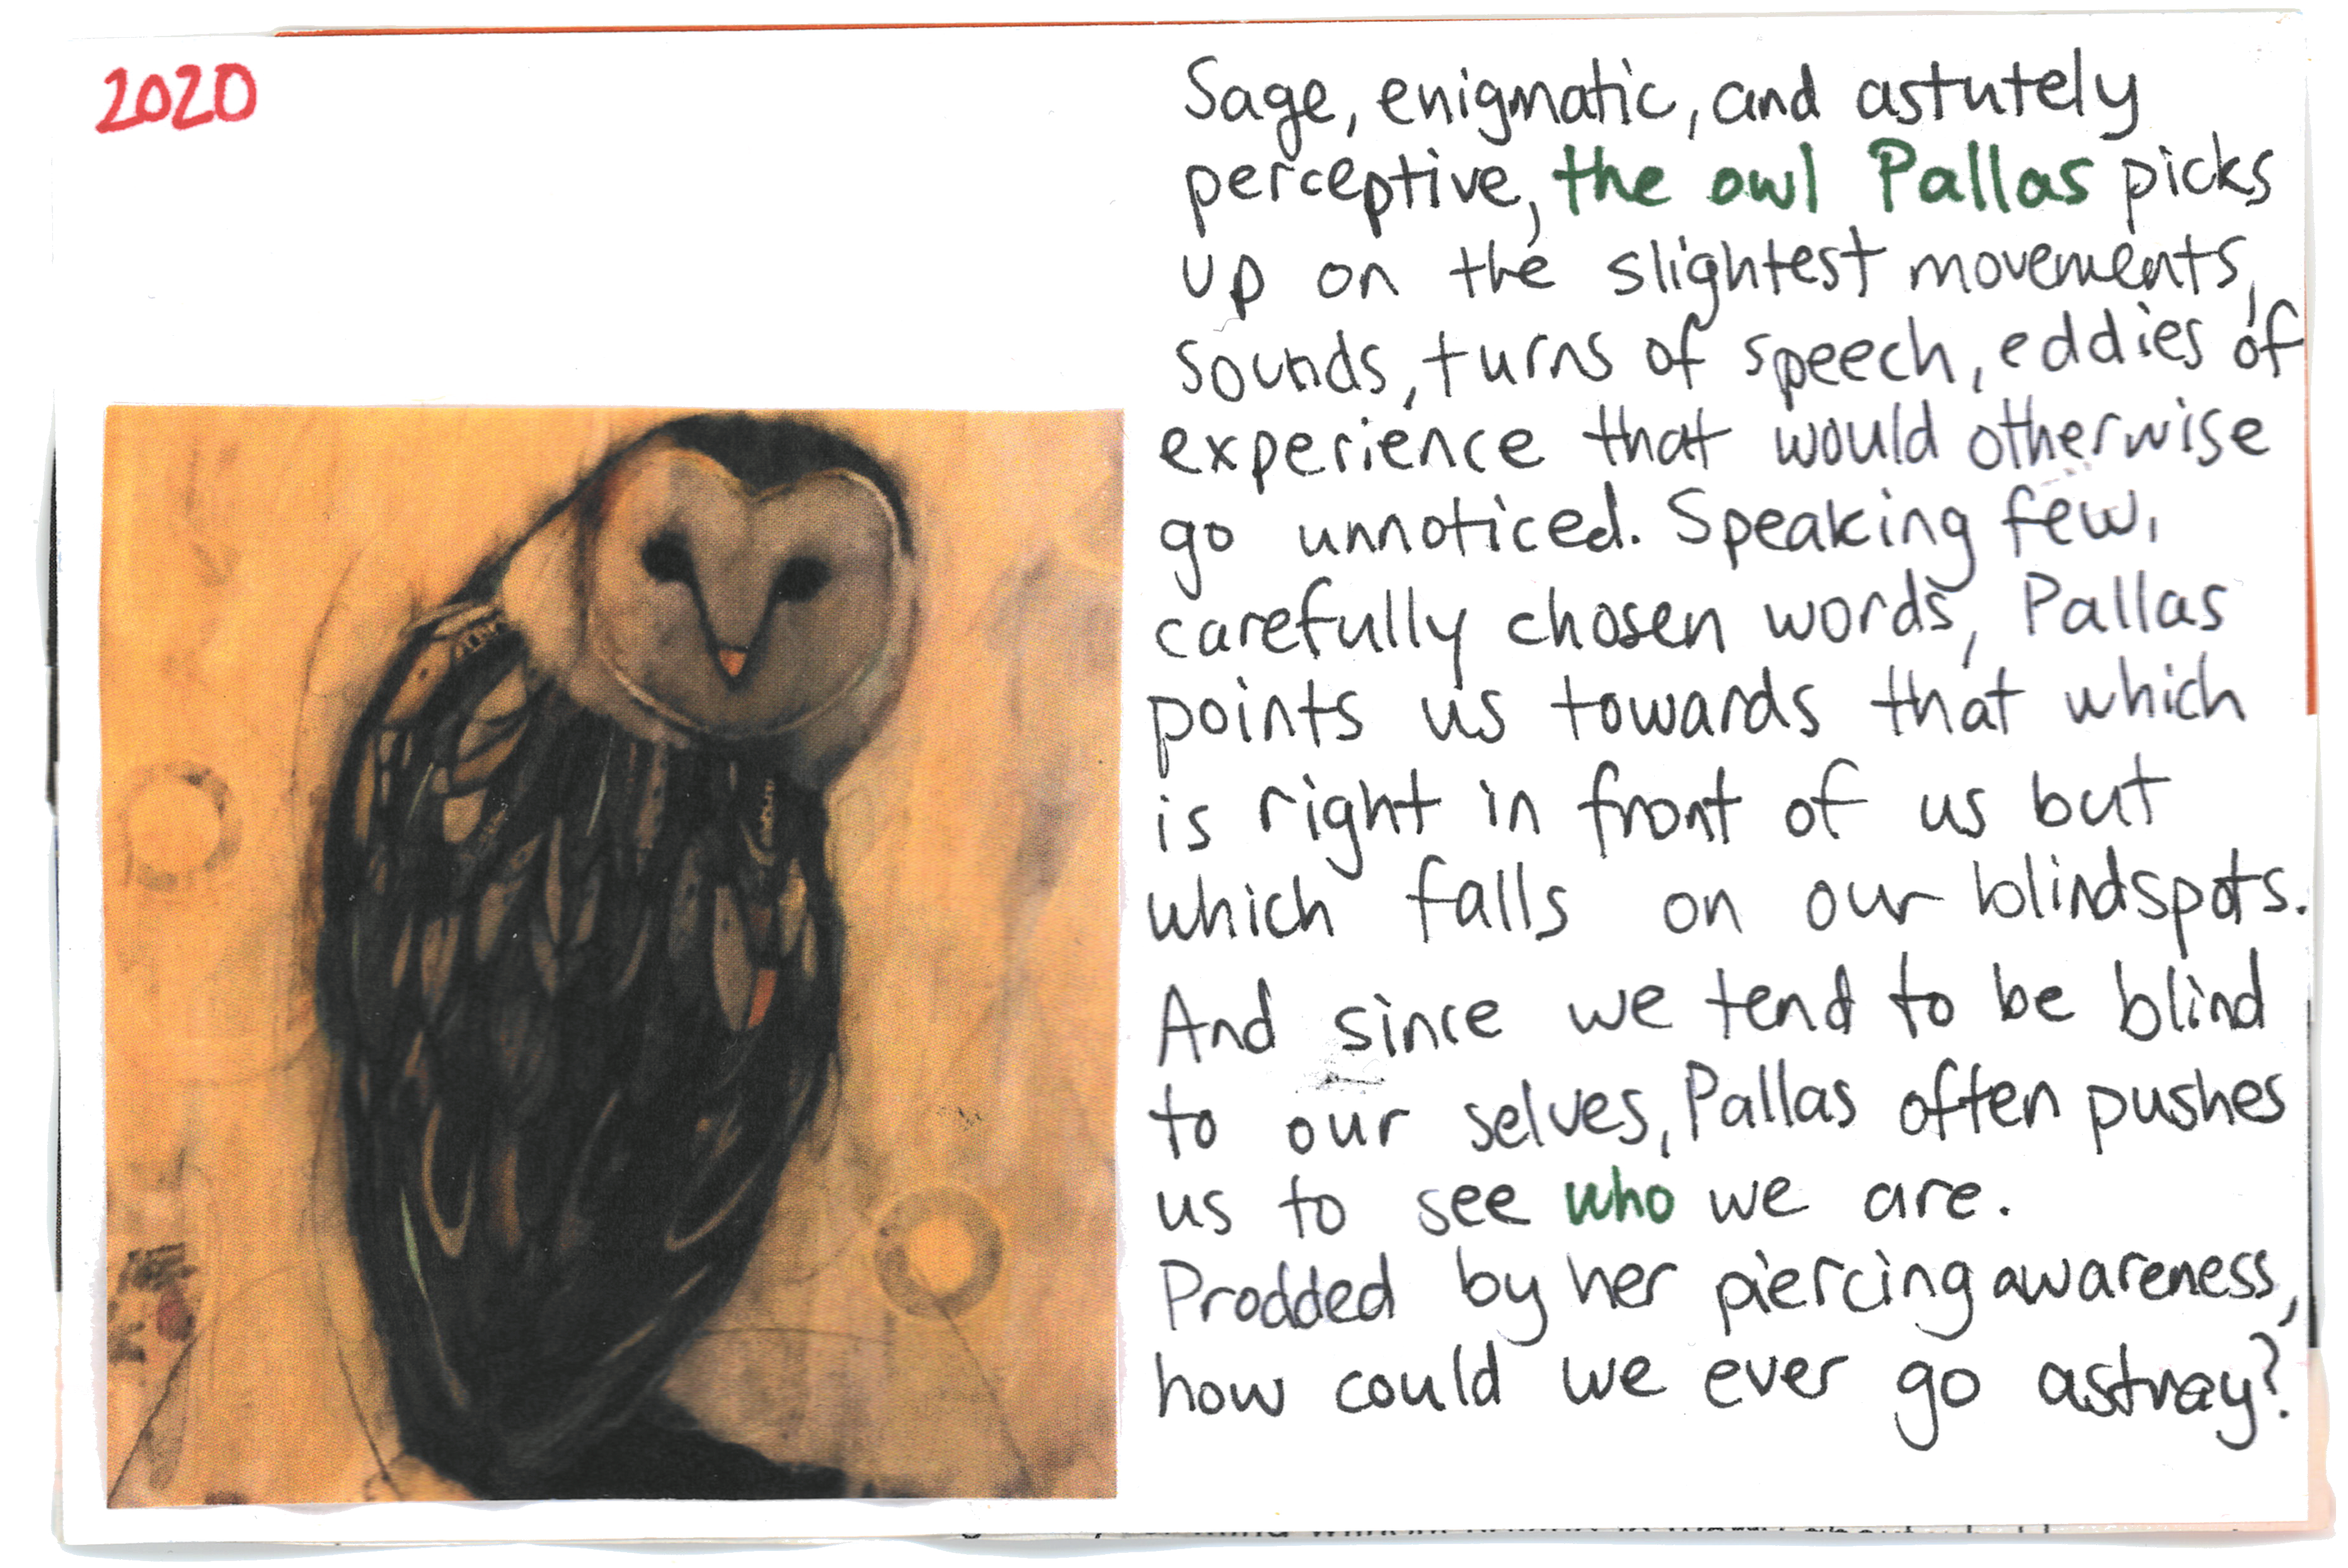 2020
Sage, enigmatic, and astutely
perceptive, the owl Pallas picks
up on the slightest movements,
sounds, turns of speech, eddies of
experience that would otherwise
go unnoticed. Speaking few,
carefully chosen words, Pallas
points us towards that which
is right in front of us but
which falls on our blindspots.
And since we tend to be blind
to our selves, Pallas often pushes
us to see who we are.
Prodded by her piercing awareness,
how could we ever go astray?